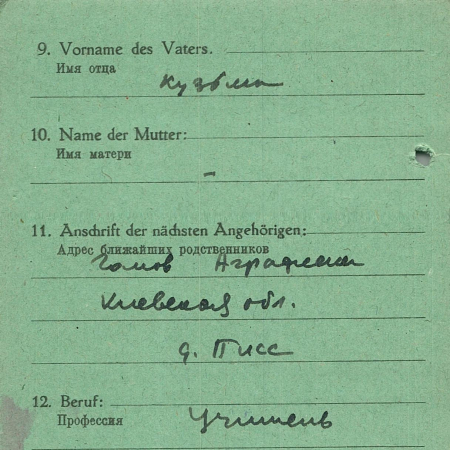 9. Vorname des Vaters.
Имя отца
Кузьма
10. Name der Mutter:
Имя матери
-
11. Anschrift der nächsten Angehörigen:
Адрес ближайших родственников
Аграфена
Киевская обл.
д. Писс
12. Beruf:
Профессия
Учитель